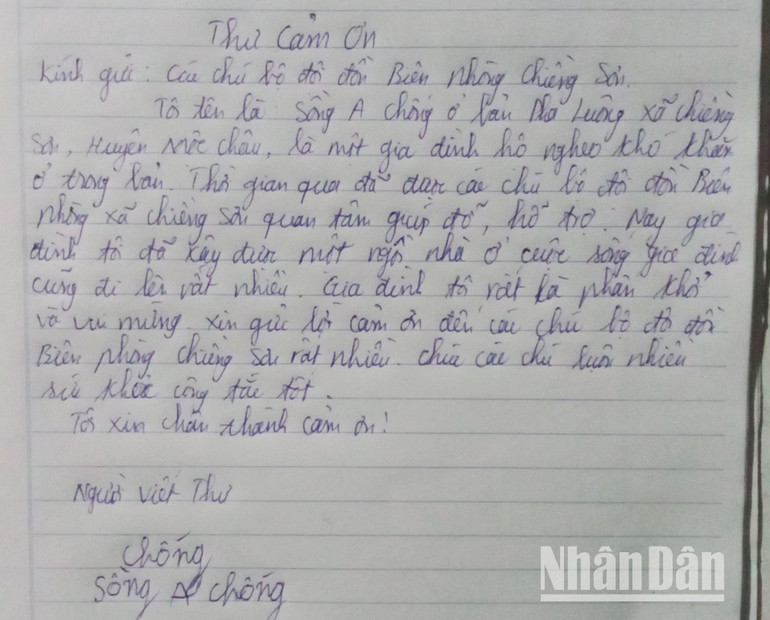 Thư Cảm Ơn
Kính gửi: Các chú bộ đội đồn Biên phòng Chiềng Sơn.
Tôi tên là: Sồng A Chống ở bản Pha Luông xã chiềng
Sơn, Huyện Mộc châu, là một gia đình hộ nghèo khó khăn
ở trong bản. Thời gian qua đã được các chú bộ đội đồn Biên
phòng xã chiềng Sơn quan tâm giúp đỡ, hỗ trợ. Nay gia
đình tôi đã xây được một ngôi nhà ở cuộc sống gia đình
cũng đi lên rất nhiều. Gia đình tôi rất là phấn khởi
và vui mừng. xin gửi lời cảm ơn đến các chú bộ đội đồn
Biên phòng chiềng Sơn rất nhiều. chúc các chú luôn nhiều
sức khỏe công tác tốt.
Tôi xin chân thành cảm ơn!
Người viết Thư
Chống
Sồng A Chống
NhânDân